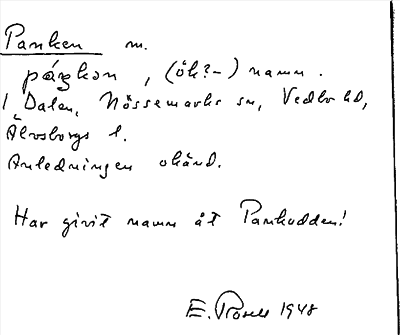 Panken m.
páŋkən, (ök?-) namn.
I Dalen, Nössemarks sn, Vedbo hd,
Älvsborgs l.
Anledningen okänd.
Har givit namn åt Pankudden!
E. 1948